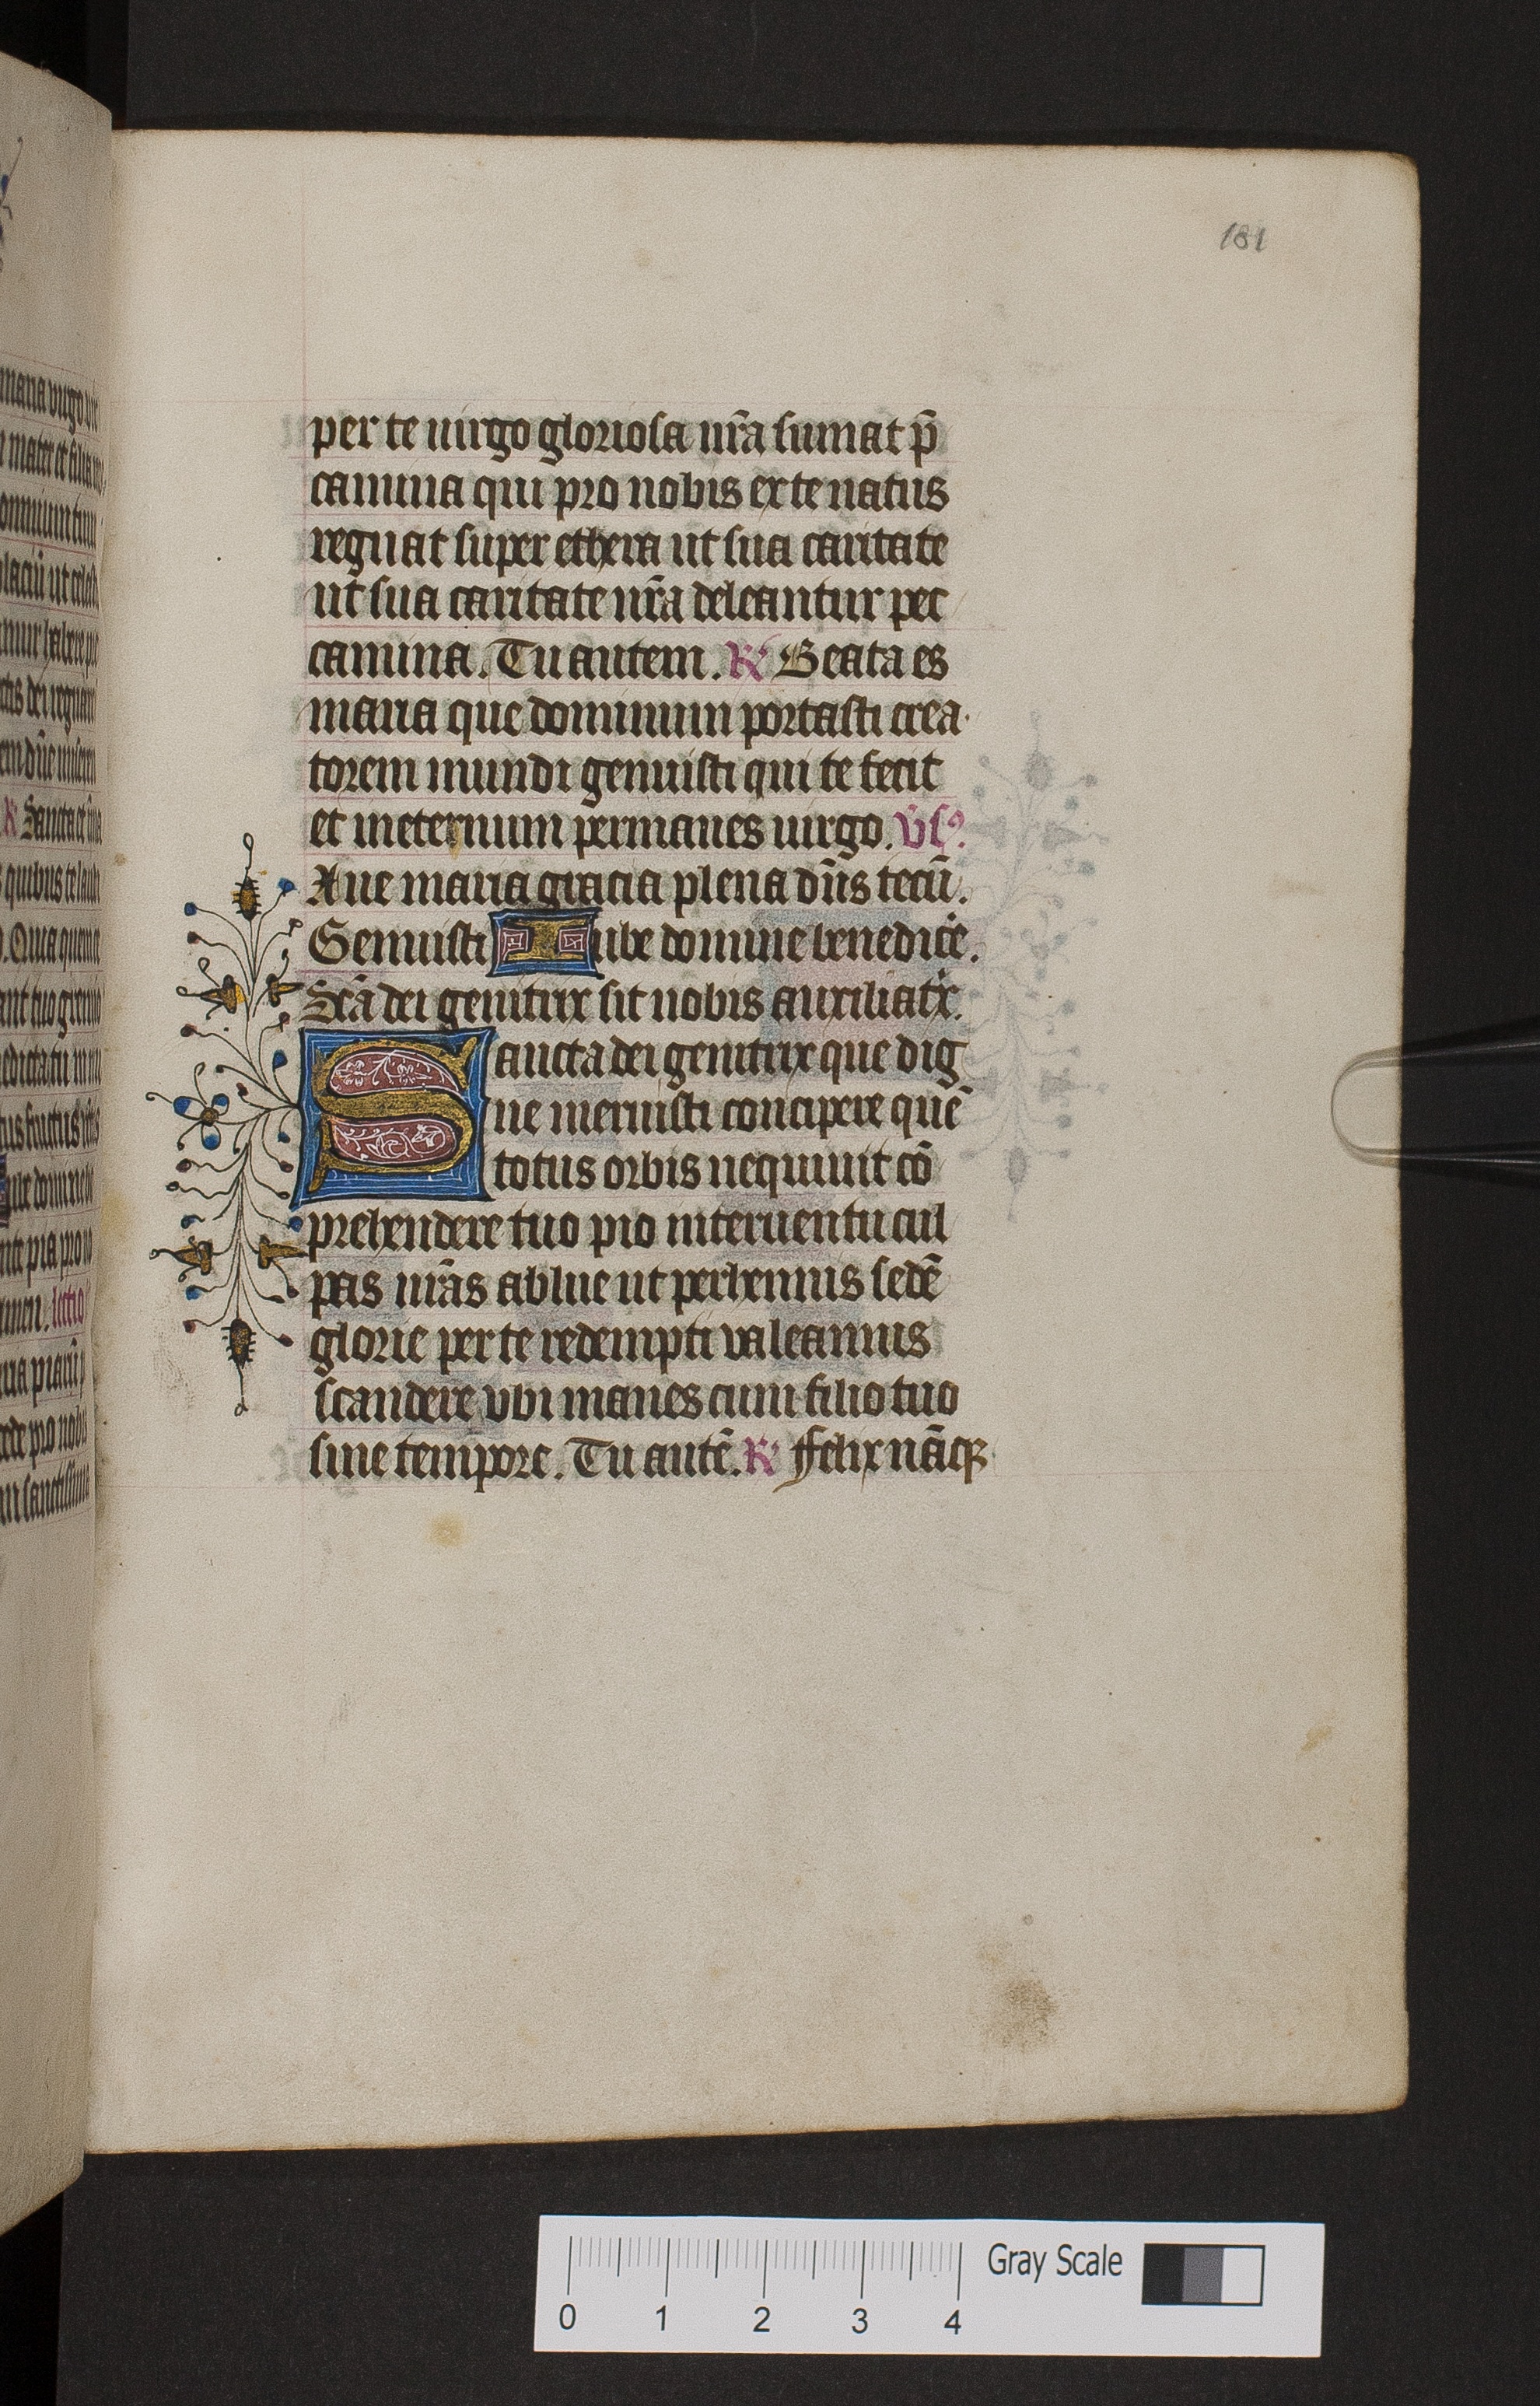 181
per te uirgo gloriosa nr̄a sumat p̄
camina qui pro nobis ex te natus
regnat super ethera ut sua caritate
ut sua caritate nr̄a deleantur pec
camina. Tu autem. R Beata es
maria que dominum portasti crea
torem mundi genuisti qui te fecit
et ineternum permanes uirgo. vs.
Aue maria gracia plena dn̄s tecū.
Genuisti Iube domine benedicē.
Sc̄a dei genitrix sit nobis auxiliatx.
Sancta dei genitrix que dig
ne meruisti concipere quē
totus orbis nequiuit cō
prehendere tuo pio interuentu cul
pas nr̄as ablue ut perhennis sedē
glorie per te redempti valeamus
scandere vbi manes cum filio tuo
sine tempore. Tu autē. R Ffelix nāqꝫ
Gray Scale
0 1 2 3 4